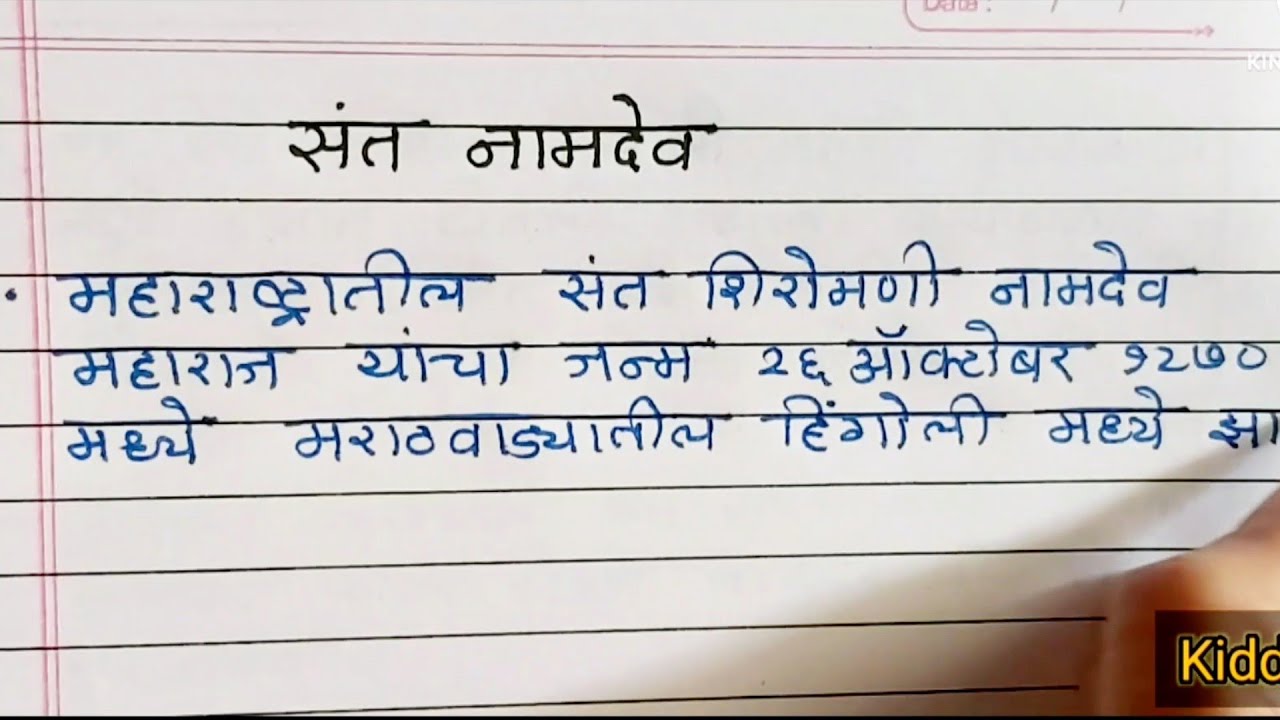 Date : / /
KIN
संत नामदेव
महाराष्ट्रातील संत शिरोमणी नामदेव
महाराज यांचा जन्म २६ ऑक्टोबर १२७०
मध्ये मराठवाड्यातील हिंगोली मध्ये झा
Kidd